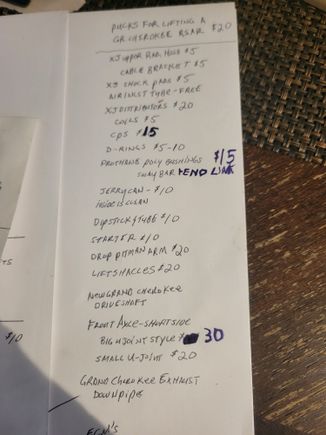 PUCKS FOR LIFTING A $20
GR CHEROKEE REAR
XJ UPPER RAD. HOSE $5
CABLE BRACKET $5
XJ SHOCK PADS $5
AIR INLET TUBE - FREE
XJ DISTRIBUTORS $20
COILS $5
CPS $15
D-RINGS $5-10
PROTHANE POLY BUSHINGS $15
SWAY BAR & END LINK
JERRY CAN - $10
INSIDE IS CLEAN
DIPSTICK & TUBE $10
STARTER $10
DROP PITMAN ARM $20
LIFT SHACLES $20
NEW GRAND CHEROKEE
DRIVESHAFT
FRONT AXLE - SHORTSIDE
BIG UJOINT STYLE 30
SMALL U-JOINT $20
GRAND CHEROKEE EXHAUST
DOWNPIPE
$10